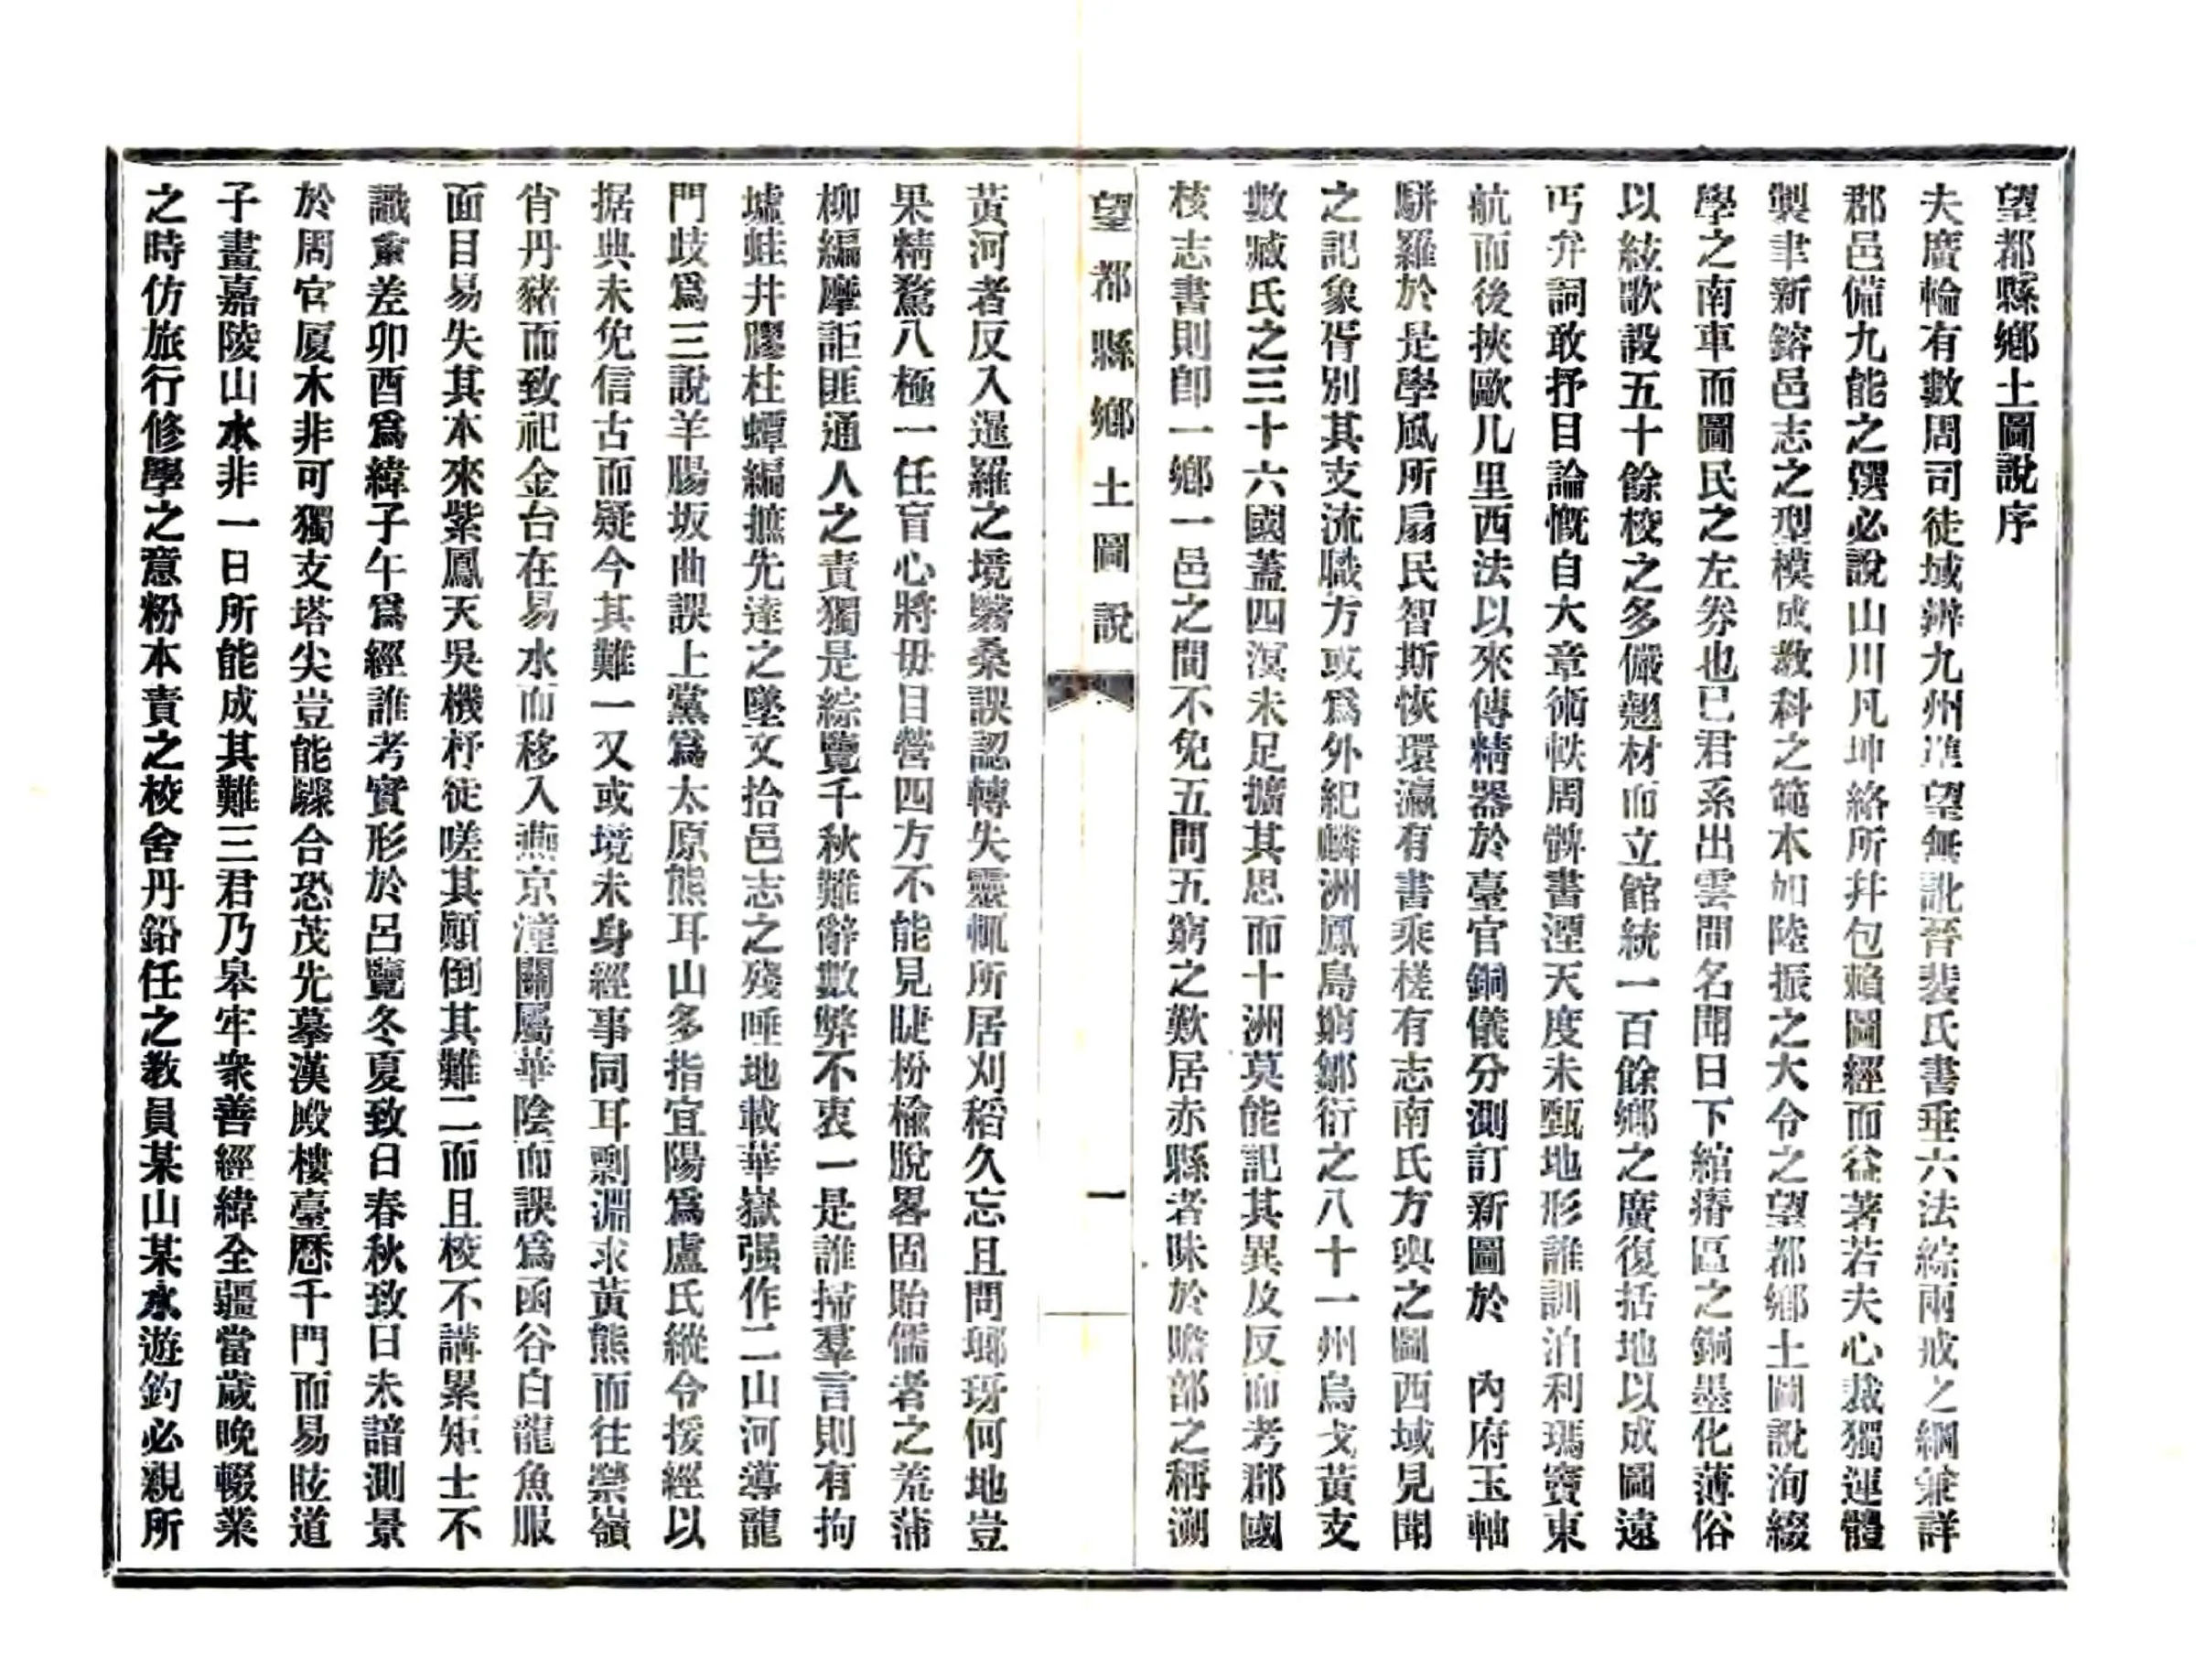 望都縣鄉土圖說序
夫廣輪有數周司徒域辨九州準望無訛晉裴氏書垂六法綜兩戒之綱兼詳
郡邑備九能之選必說山川凡坤絡所幷包賴圖經而益著若夫心裁獨運體
製聿新鎔邑志之型模成敎科之範本如陸振之大令之望都鄉土圖說洵綴
學之南車而圖民之左券也已君系出雲間名聞日下綰瘠區之銅墨化薄俗
以絃歌設五十餘校之多儼翹材而立館統一百餘鄉之廣復括地以成圖遠
丐弁詞敢抒目論慨自大章術軼周髀書湮天度未甄地形誰訓泊利瑪竇東
航而後挾歐几里西法以來傳精器於臺官銅儀分測訂新圖於　內府玉軸
駢羅於是學風所扇民智斯恢環瀛有書乘槎有志南氏方輿之圖西域見聞
之記象胥別其支流職方或爲外紀麟洲鳳島窮鄒衍之八十一州烏戈黃支
數臧氏之三十六國蓋四溟未足擴其思而十洲莫能記其異及反而考郡國
核志書則卽一鄉一邑之間不免五問五窮之歎居赤縣者昧於贍部之稱溯
望都縣鄉土圖說
一
黃河者反入暹羅之境翳桑誤認轉失靈輒所居刈稻久忘且問瑯玡何地豈
果精騖八極一任盲心將毋目營四方不能見睫枌楡脫畧固貽儒者之羞蒲
柳編摩詎匪通人之責獨是綜覽千秋難辭數弊不衷一是誰掃羣言則有拘
墟蛙井膠柱蟫編摭先達之墜文拾邑志之殘唾地載華嶽强作二山河導龍
門歧爲三說羊腸坂曲誤上黨爲太原熊耳山多指宜陽爲盧氏縱令援經以
据典未免信古而疑今其難一又或境未身經事同耳剽淵求黃熊而往禜嶺
肖丹豬而致祀金台在易水而移入燕京潼關屬華陰而誤爲函谷白龍魚服
面目易失其本來紫鳳天吳機杼徒嗟其顚倒其難二而且校不講累矩士不
識重差卯酉爲緯子午爲經誰考實形於呂覽冬夏致日春秋致日未諳測景
於周官厦木非可獨支塔尖豈能驟合恐茂先墓漢殿樓臺歷千門而易眩道
子畫嘉陵山水非一日所能成其難三君乃皋牢衆善經緯全疆當歲晚輟業
之時仿旅行修學之意粉本責之校舍丹鉛任之敎員某山某水遊釣必親所